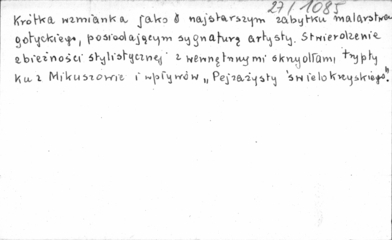 27/1085
Krótka wzmianka jako o najstarszym zabytku malarstwa
gotyckiego, posiadającym sygnaturę artysty. Stwierdzenie
zbieżności stylistycznej z wewnętrznymi skrzydłami, trypty
ku z Mikuszowic i wpływów „Pejzażysty świętokrzyskiego".